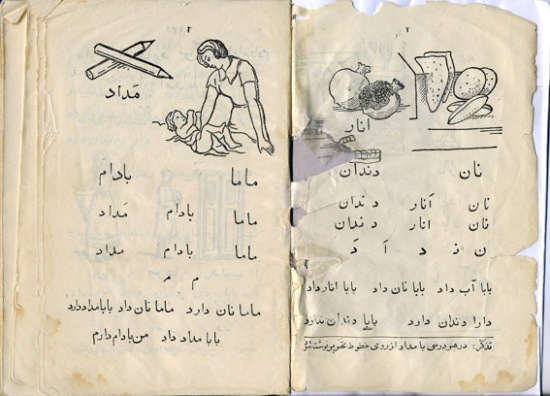 ۲
انار
نان دندان
نان اَنار دندان
نان انار دندان
ن د اَ دَ
بابا آب داد بابا نان داد بابا انار داد
دارا دندان دارد بابا دندان ندارد
تذکر: در هر درسی با مداد از روی خطوط
مَداد
ماما بادام
ماما بادام مَداد
ماما بادام مداد
م م
ماما نان دارد ماما نان داد بابا مداد دارد
بابا مداد داد من بادام دارم